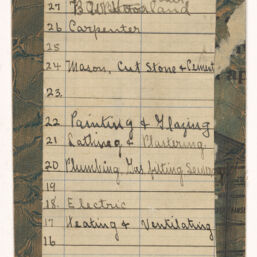 27
26 Carpenter
25
24 Mason, Cut Stone & Cement
23.
22. Painting & Glazing
21 Lathing & Plastering
20 Plumbing Gas fitting
19
18. Electric
17 Heating & Ventilating
16